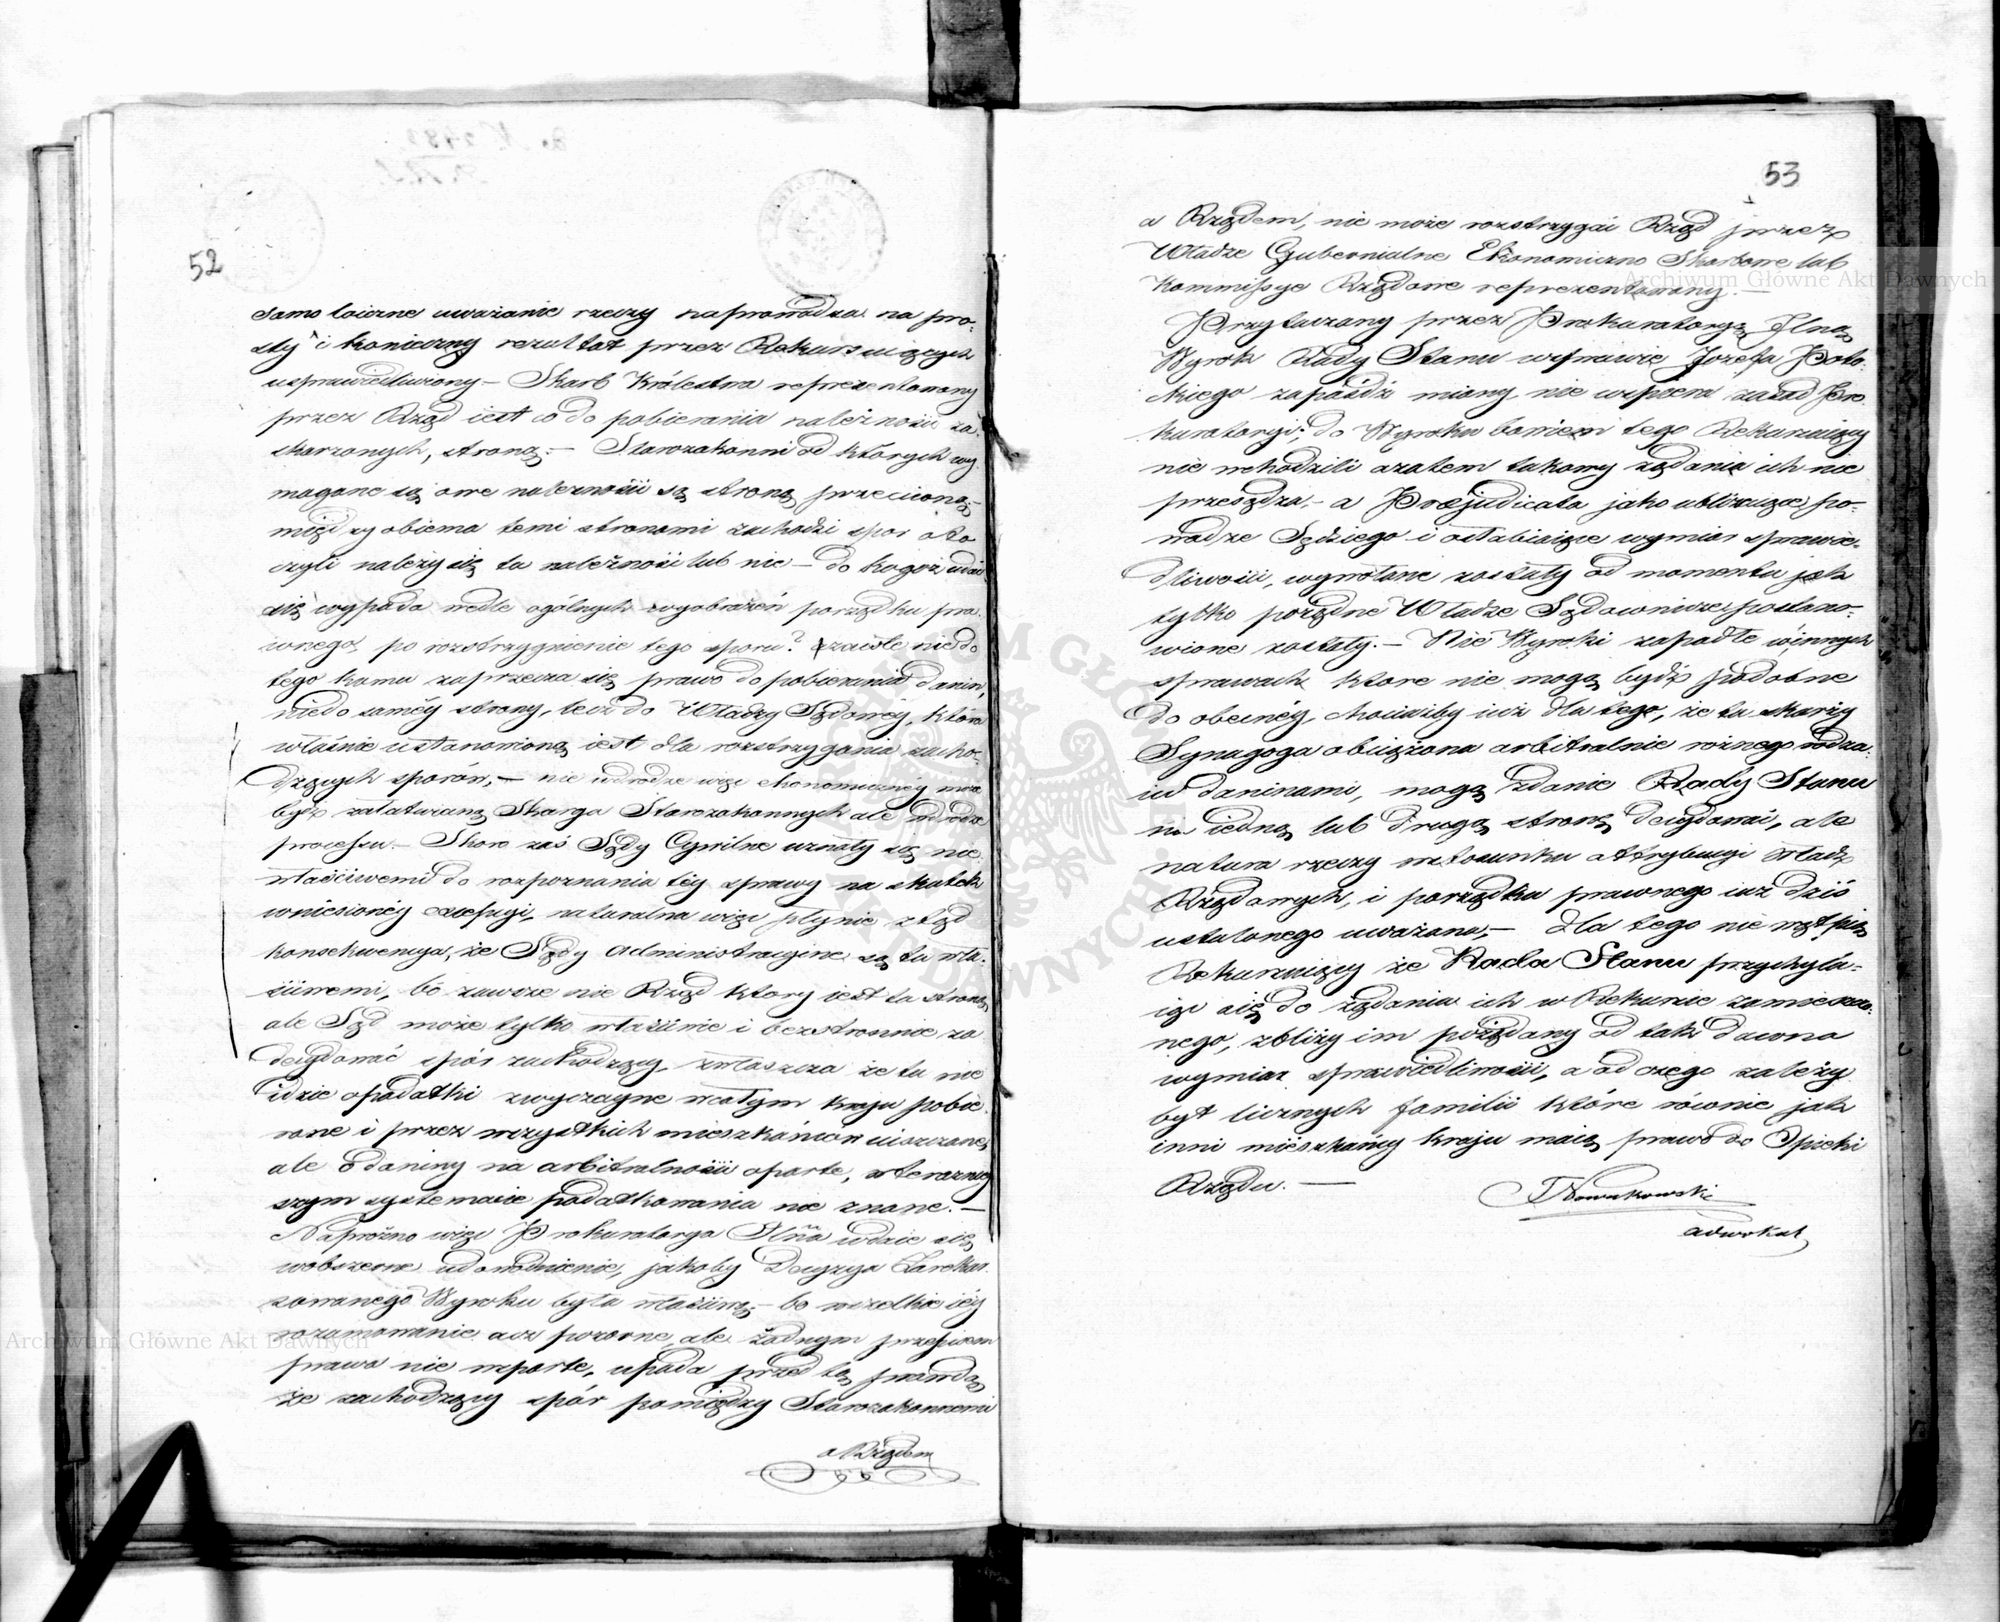 52
samo loiczne uważanie rzeczy naprowadza na pro-
sty i konieczny rezultat przez Rekursuiących
usprawiedliwiony – Skarb Królestwa reprezentowany
przez Rząd iest co do pobierania należności za-
skarżonych, stroną; – Starozakonni od których wy
magane są owe należności są stroną przeciwną –
między obiema temi stronami zachodzi spór o to
czyli należy się ta należność lub nie – do kogoż udać
się wypada wedle ogólnych wyobrażeń porządku pra-
wnego, po rozstrzygnienie tego sporu? wszakże nie do
tego komu zaprzecza się prawo do pobierania danin,
nie do saméy strony, lecz do Władzy Sądowéy, która
właśnie ustanowioną iest dla rozstrzygania zacho-
dzących sporów, – nie w drodze więc ekonomicznéy może
bydź załatwianą Skarga Starozakonnych ale w drodze
processu. – Skoro zaś Sądy Cywilne uznały się nie
właściwemi do rozpoznania téy sprawy na skutek
wniesionéy excepcyi, naturalna więc płynie ztąd
konsekwencya, że Sądy Administracyine są tu wła-
ściwemi, bo zawsze nie Rząd który iest tu stroną
ale Sąd może tylko właściwie i bezstronnie za
decydować spór zachodzący, zwłaszcza że tu nie
idzie o podatki zwyczayne w całym kraju pobie-
rane i przez wszystkich mieszkańców uiszczane,
ale o daniny na arbitralności oparte, w teraźniey
szym systemacie podatkowania nie znane. –
Napróżno więc Prokuratorya Jlna wdaie się
w obszerne udowodnienie, jakoby Decyzya Zarekur-
sowanego Wyroku była właściwą; – bo wszelkie iéy
rozumowanie acz pozorne ale żadnym przepisem
prawa nie wsparte, upada przed tą prawdą
że zachodzący spór pomiędzy Starozakonnemi
a Rządem
53
a Rządem, nie może rozstrzygać Rząd przez
Władze Gubernialne Ekonomiczno Skarbowe lub
Kommissye Rządowe reprezentowany. –
Przytaczany przez Prokuratoryą Jlną
Wyrok Rady Stanu w sprawie Józefa Poto-
ckiego zapaśdź miany nie wspiera zasad Pro-
kuratoryi; do Wyroku bowiem tego Rekursuiący
nie wchodzili a zatem takowy żądania ich nie
przesądza, – a Præjudicata jako ubliżaiące po-
wadze Sędziego i osłabiaiące wymiar sprawie-
dliwości, wywołane zostały od momentu jak
tylko porządne Władze Sądownicze postano-
wione zostały. – Nie Wyroki zapadłe w innych
sprawach które nie mogą bydź podobne
do obecnéy, chociażby iuż dla tego, że tu skarży
Synagoga obciążona arbitralnie rożnego rodza-
iu daninami, mogą zdanie Rady Stanu
na iedną lub drugą stronę decydować, ale
natura rzeczy w stosunku attrybucyi Władz
Rządowych, i porządku prawnego iuż dziś
ustalonego uważana; – Dla tego nie wątpią
Rekursuiący że Rada Stanu przychyla-
iąc się do żądania ich w Rekursie zamieszczo-
nego, zbliży im pożądany od tak dawna
wymiar sprawiedliwości, a od czego zależy
byt licznych familii które równie jak
inni mieszkańcy kraju maią prawo do Opieki
Rządu. –
J Nowakowski
adwokat